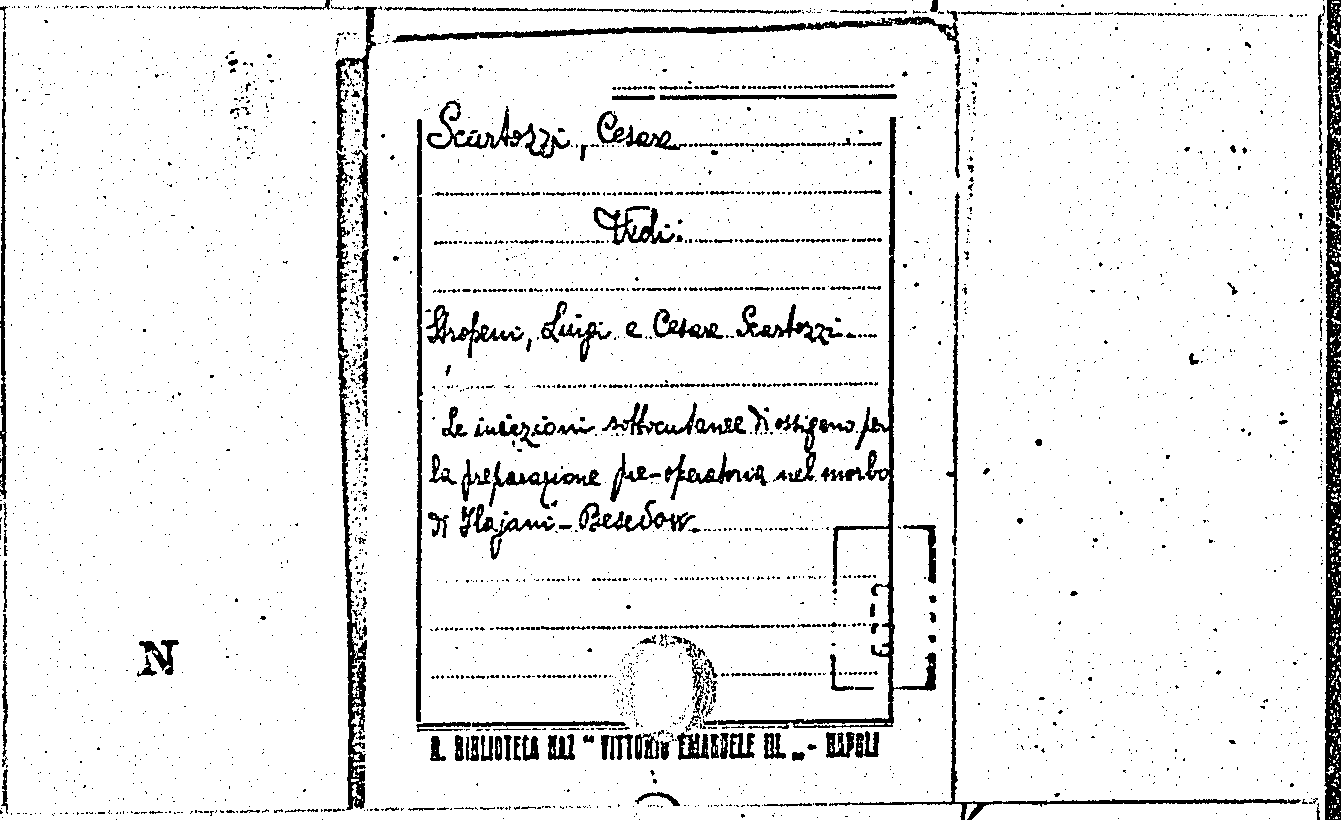 Scartozzi, Cesare
Vedi:
Stropeni, Luigi e Cesare Scartozzi.
Le iniezioni sottocutanee di ossigeno per
la preparazione pre-operatoria nel morbo
di Flajani-Basedow.
N
R. BIBLIOTECA NAZ " VITTORIO EMANUELE III. „ - NAPOLI